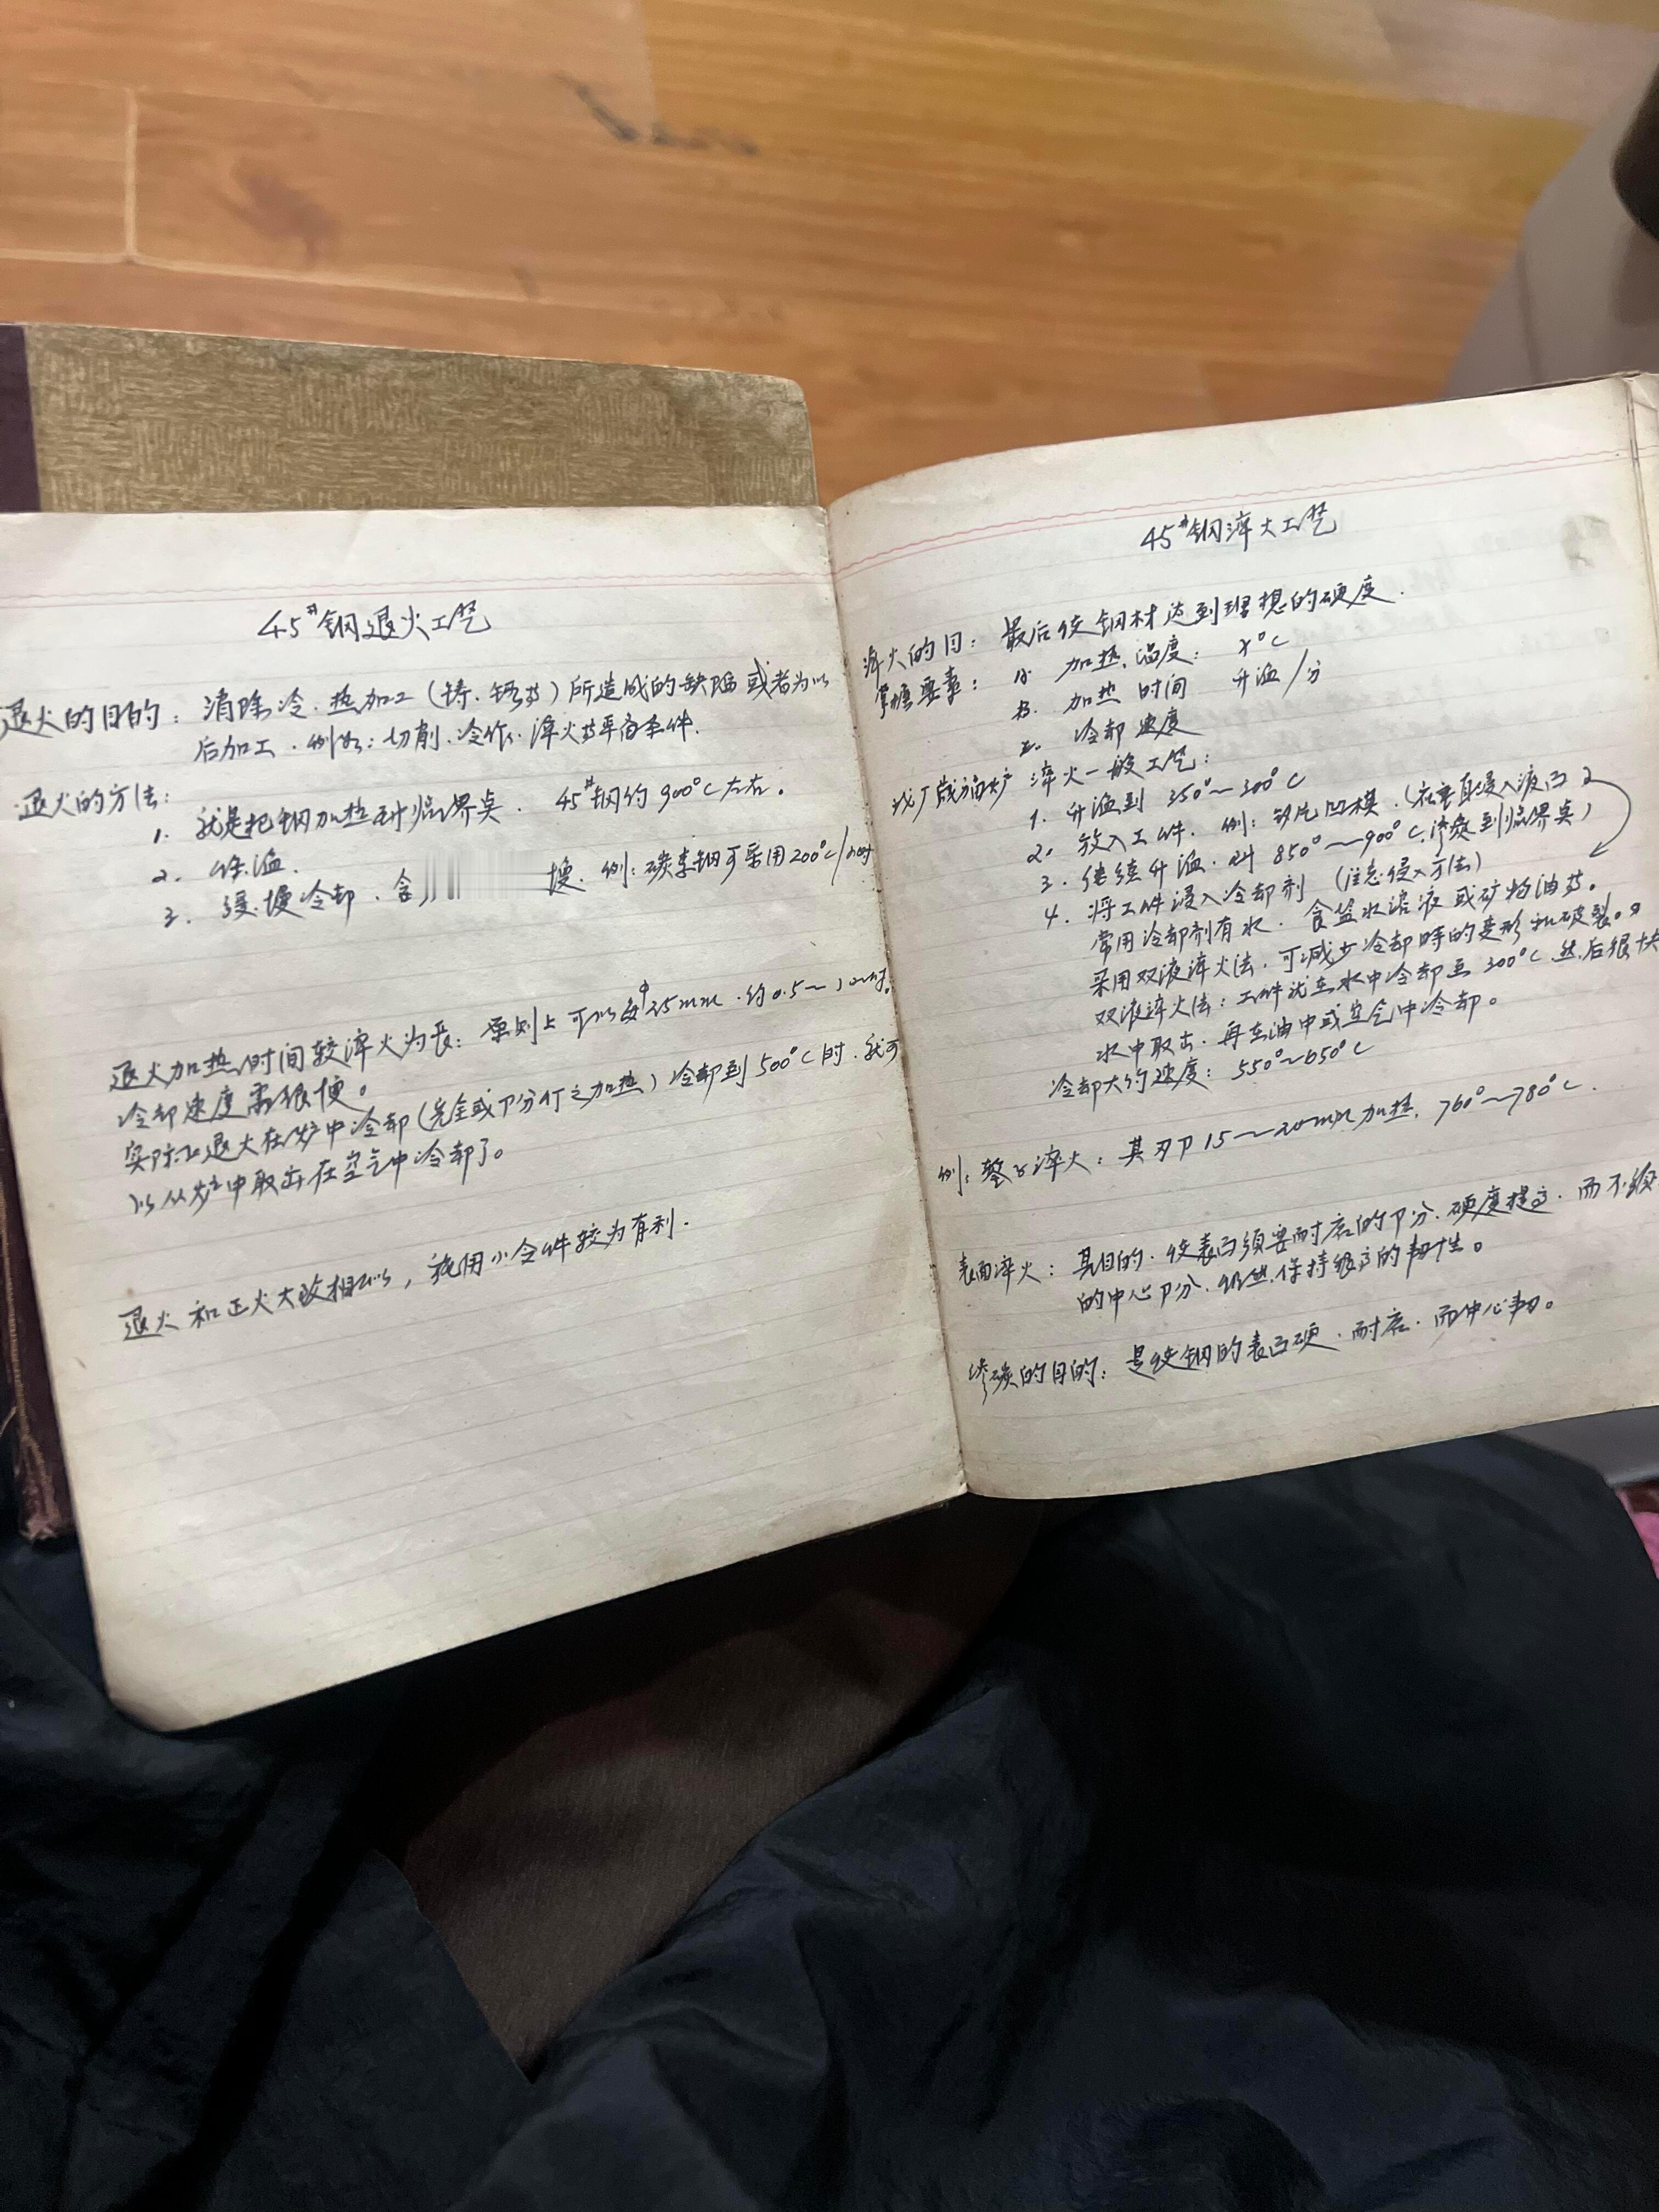 45#钢退火工艺
退火的目的：消除冷、热加工（铸、锻等）所造成的缺陷或者为以
后加工．例如：切削、冷作、淬火等准备条件．
退火的方法：
1. 就是把钢加热到临界点． 45#钢约900°C左右．
2. 保温．
3. 缓慢冷却．含 慢．例：碳素钢可采用200°C/小时
退火加热时间较淬火为长：原则上可以每φ25mm．约0.5～1小时。
冷却速度需很慢。
实际上退火在炉中冷却（完全或部分行之加热）冷却到500°C时．就可
以从炉中取出在空气中冷却了。
退火和正火大致相似，就用小令件较为有利．
45#钢淬火工艺
淬火的目：最后使钢材达到理想的硬度．
掌握要素：1. 加热温度： x°C
2. 加热时间 升温/分
3. 冷却速度
我厂 炉 淬火一般工艺：
1. 升温到 350°～300°C
2. 放入工件．例：矽片凹模．（在垂直浸入液面
3. 继续升温．到850°～900°C（渗炭到临界点）
4. 将工件浸入冷却剂（注意侵入方法）
常用冷却剂有水．食盐水溶液或矿物油等。
采用双液淬火法．可减少冷却时的变形和破裂。
双液淬火法：工件就在水中冷却至300°C然后很快
水中取出．再在油中或空气中冷却。
冷却大约速度：550°～650°C
例：錾子淬火：其刃部15～20mm加热．760°～780°C．
表面淬火：其目的．使表面须要耐磨的部分．硬度提高．而不
的中心部分．仍然保持很高的韧性。
渗碳的目的：是使钢的表面硬．耐磨．而中心韧。